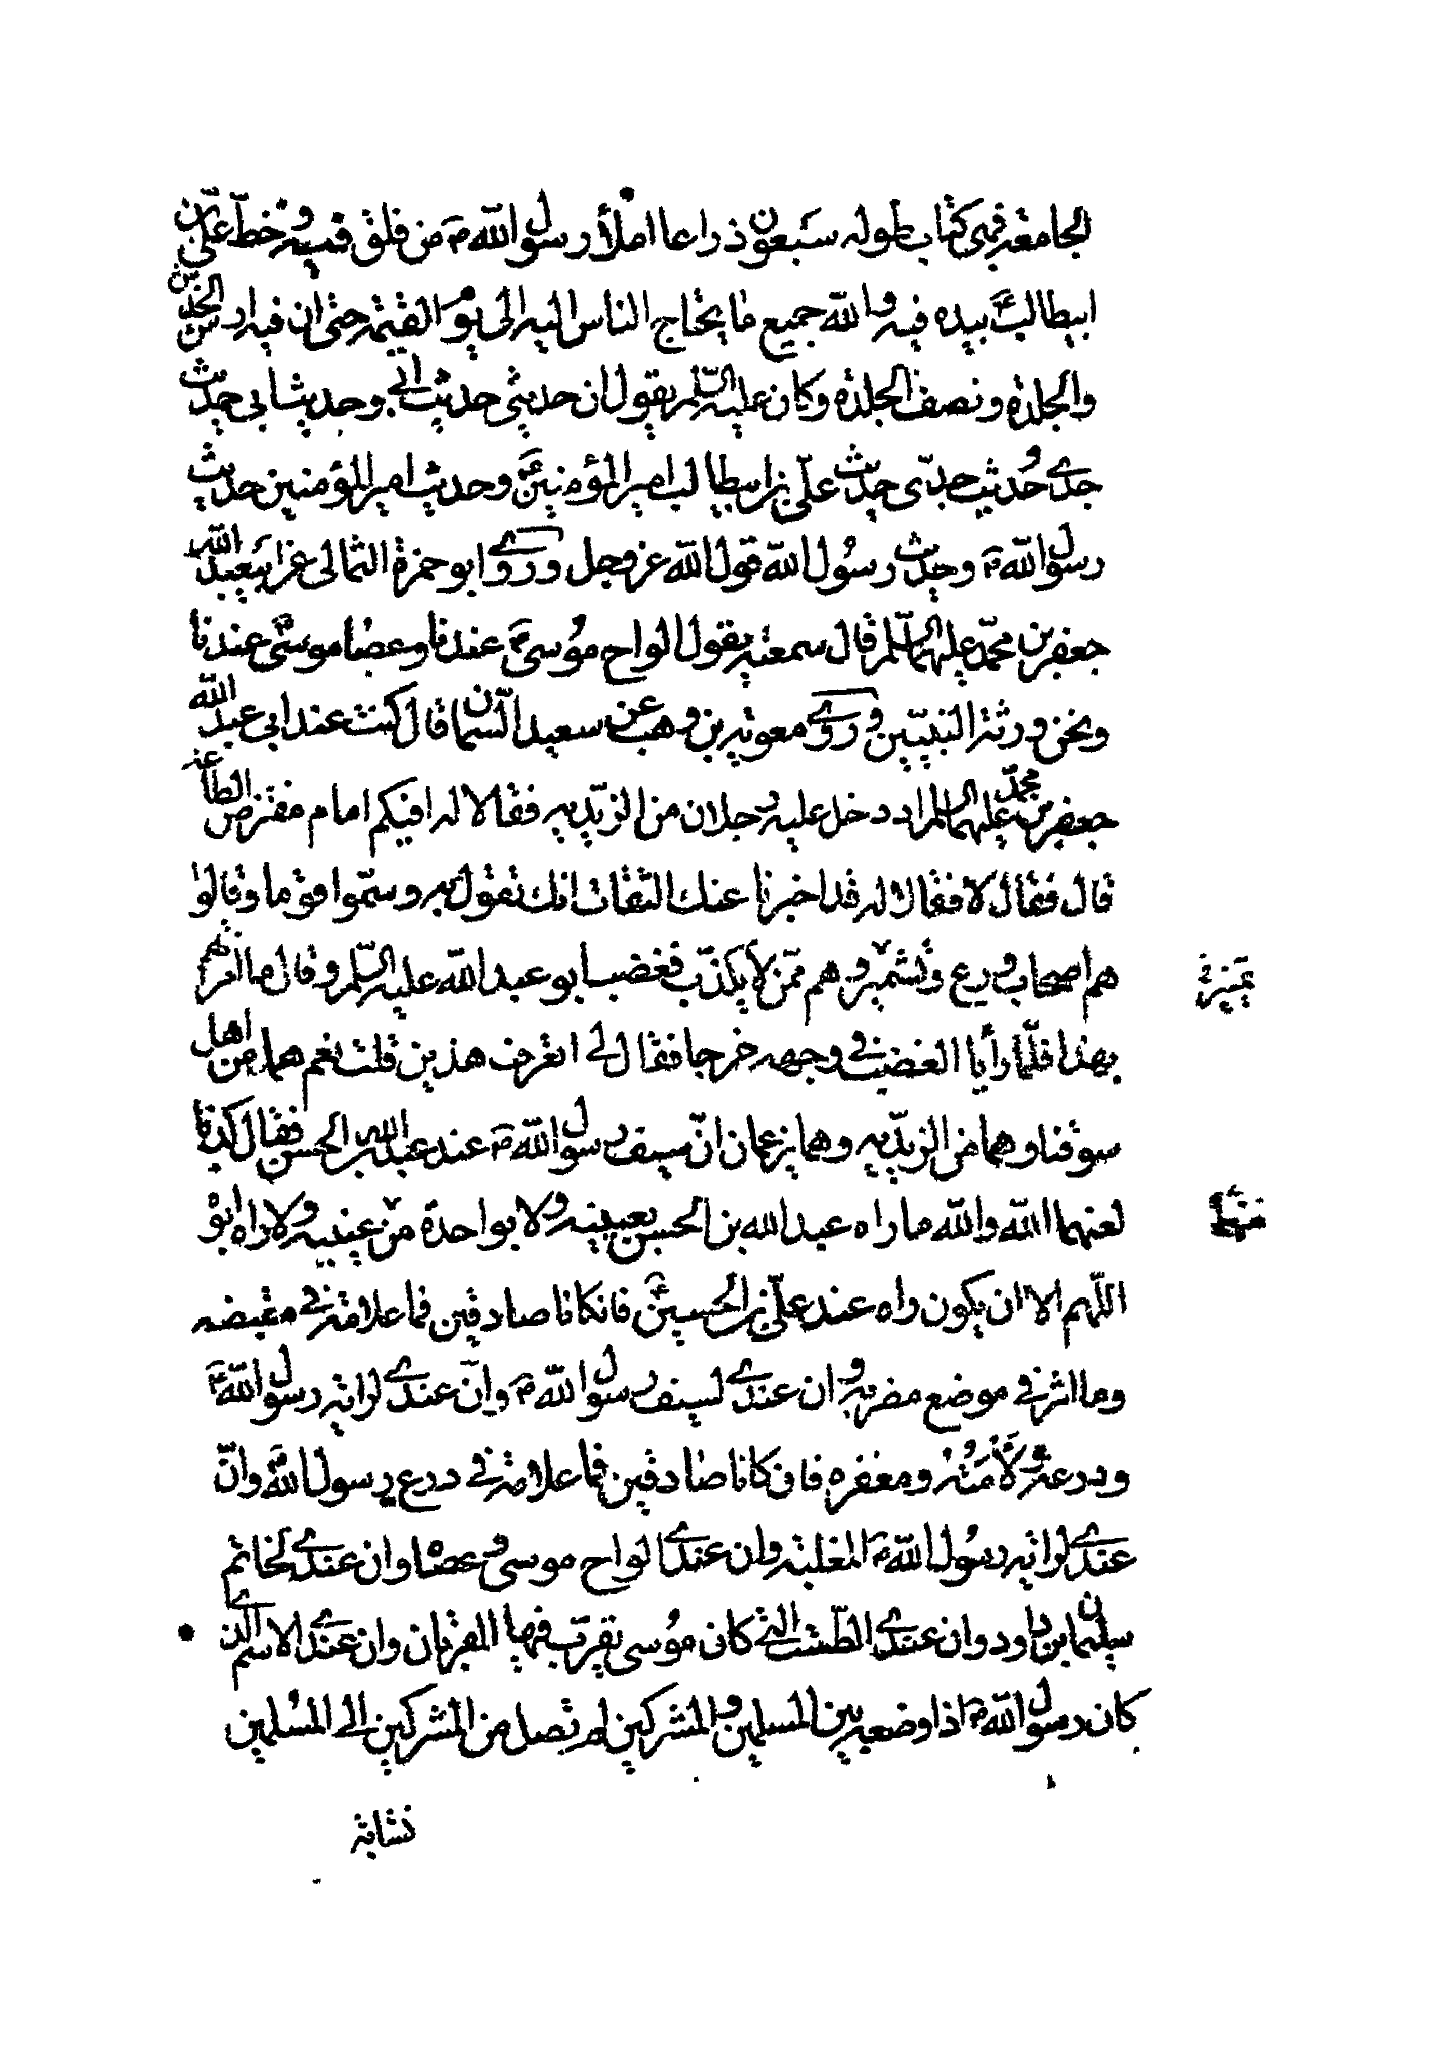 الجامعة فهى كتاب طوله سبعون ذراعا املأ رسول الله ص من فلق فيه وخط على بن
ابيطالب ع بيده فيه والله جميع ما يحتاج الناس اليه الى يوم القيمة حتى ان فيه ارش الخدش
والجلدة ونصف الجلدة وكان عليه السلم يقول ان حديثى حديث ابى وحديث ابى حديث
جدى وحديث جدى حديث على بن ابيطالب امير المؤمنين ع وحديث امير المؤمنين حديث
رسول الله ص وحديث رسول الله قول الله عز وجل وروى ابو حمزة الثمالى عن ابيعبد الله
جعفر بن محمد عليهما السلم قال سمعته يقول الواح موسى ع عندنا وعصا موسى عندنا
ونحن ورثة النبيين وروى معوية بن وهب عن سعيد السمان قال كنت عند ابى عبد الله
جعفر بن محمد عليهما السلم اذ دخل عليه رجلان من الزيدية فقالا له افيكم امام مفترض الطاعة
قال فقال لا فقالا له قد اخبرنا عنك الثقات انك تقول به وسموا قوما وقالوا
هم اصحاب ورع وتشمير وهم ممن لا يكذب فغضب ابو عبد الله عليه السلم وقال ما امرتهم
بهذا فلما رأيا الغضب فى وجهه خرجا فقال لى اتعرف هذين قلت نعم هما من اهل
سوقنا وهما من الزيدية وهما يزعمان ان سيف رسول الله ص عند عبد الله بن الحسن فقال كذبا
لعنهما الله والله ما راه عبد الله بن الحسن بعينيه ولا بواحدة من عينيه ولا راه ابوه
اللهم الا ان يكون راه عند على بن الحسين ع فان كانا صادقين فما علامة فى مقبضه
وما اثر فى موضع مضربه وان عندى لسيف رسول الله ص وان عندى لراية رسول الله ص
ودرعه ولأمته ومغفره فان كانا صادقين فما علامة فى درع رسول الله وان
عندى لراية رسول الله ص المغلبة وان عندى الواح موسى وعصاه وان عندى لخاتم
سليمان بن داود وان عندى الطشت التى كان موسى يقرب فيها القربان وان عندى الاسم الذى
كان رسول الله ص اذا وضعه بين المسلمين والمشركين لم تصل من المشركين الى المسلمين
نشابة